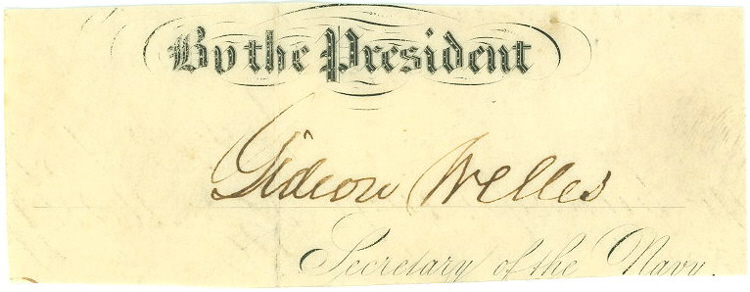 By the President
Gideon Welles
Secretary of the Navy.